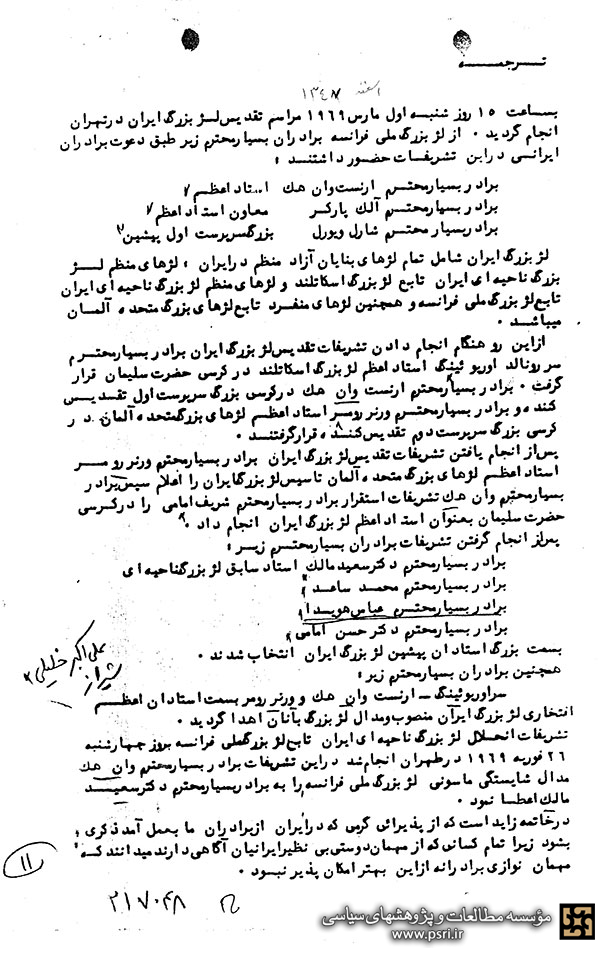 ترجمه
اسفند ۱۳۴۷
بساعت ۱۵ روز شنبه اول مارس ۱۹۶۹ مراسم تقدیس لژ بزرگ ایران در تهران
انجام گردید ۰ از لژ بزرگ ملی فرانسه برادران بسیار محترم زیر طبق دعوت برادران
ایرانی در این تشریفات حضور داشتند :
برادر بسیار محترم ارنست وان هک استاد اعظم
برادر بسیار محترم آلک پارکر معاون استاد اعظم
برادر بسیار محترم شارل ویورل بزرگ سرپرست اول پیشین
لژ بزرگ ایران شامل تمام لژهای بنایان آزاد منظم در ایران ؛ لژهای منظم لژ
بزرگ ناحیه ای ایران تابع لژ بزرگ اسکاتلند و لژهای منظم لژ بزرگ ناحیه ای ایران
تابع لژ بزرگ ملی فرانسه و همچنین لژهای منفرد تابع لژهای بزرگ متحده آلمان
میباشد ۰
از این رو هنگام انجام دادن تشریفات تقدیس لژ بزرگ ایران برادر بسیار محترم
سر رونالد اور یوئینگ استاد اعظم لژ بزرگ اسکاتلند در کرسی حضرت سلیمان قرار
گرفت ۰ برادر بسیار محترم ارنست وان هک در کرسی بزرگ سرپرست اول تقدیس
کننده و برادر بسیار محترم ورنر رومر استاد اعظم لژهای بزرگ متحده آلمان در
کرسی بزرگ سرپرست دوم تقدیس کننده قرار گرفتند ۰
پس از انجام یافتن تشریفات تقدیس لژ بزرگ ایران برادر بسیار محترم ورنر رومر
استاد اعظم لژهای بزرگ متحده آلمان تاسیس لژ بزرگ ایران را اعلام سپس برادر
بسیار محترم وان هک تشریفات استقرار برادر بسیار محترم شریف امامی را در کرسی
حضرت سلیمان بعنوان استاد اعظم لژ بزرگ ایران انجام داد ۰
پس از انجام گرفتن تشریفات برادران بسیار محترم زیر :
برادر بسیار محترم دکتر سعید مالک استاد سابق لژ بزرگ ناحیه ای
برادر بسیار محترم محمد ساعد
برادر بسیار محترم عباس هویدا
برادر بسیار محترم دکتر حسن امامی
بسمت بزرگ استادان پیشین لژ بزرگ ایران انتخاب شدند ۰
علی اکبر خلیلی
شیراز
همچنین برادران بسیار محترم زیر :
سر اور یوئینگ ـ ارنست وان هک و ورنر رومر بسمت استادان اعظم
افتخاری لژ بزرگ ایران منصوب و مدال لژ بزرگ بآنان اهدا گردید ۰
تشریفات انحلال لژ بزرگ ناحیه ای ایران تابع لژ بزرگ ملی فرانسه بروز چهارشنبه
۲۶ فوریه ۱۹۶۹ در طهران انجام شد در این تشریفات برادر بسیار محترم وان هک
مدال شایستگی ماسونی لژ بزرگ ملی فرانسه را به برادر بسیار محترم دکتر سعید
مالک اعطا نمود ۰
در خاتمه زاید است که از پذیرائی گرمی که در ایران از برادران ما بعمل آمد ذکری
بشود زیرا تمام کسانی که از مهمان دوستی بی نظیر ایرانیان آگاهی دارند میدانند که
مهمان نوازی برادرانه از این بهتر امکان پذیر نبود ۰
۱۱
۲۱۷۰۴۸
مؤسسه مطالعات و پژوهشهای سیاسی
www.psri.ir